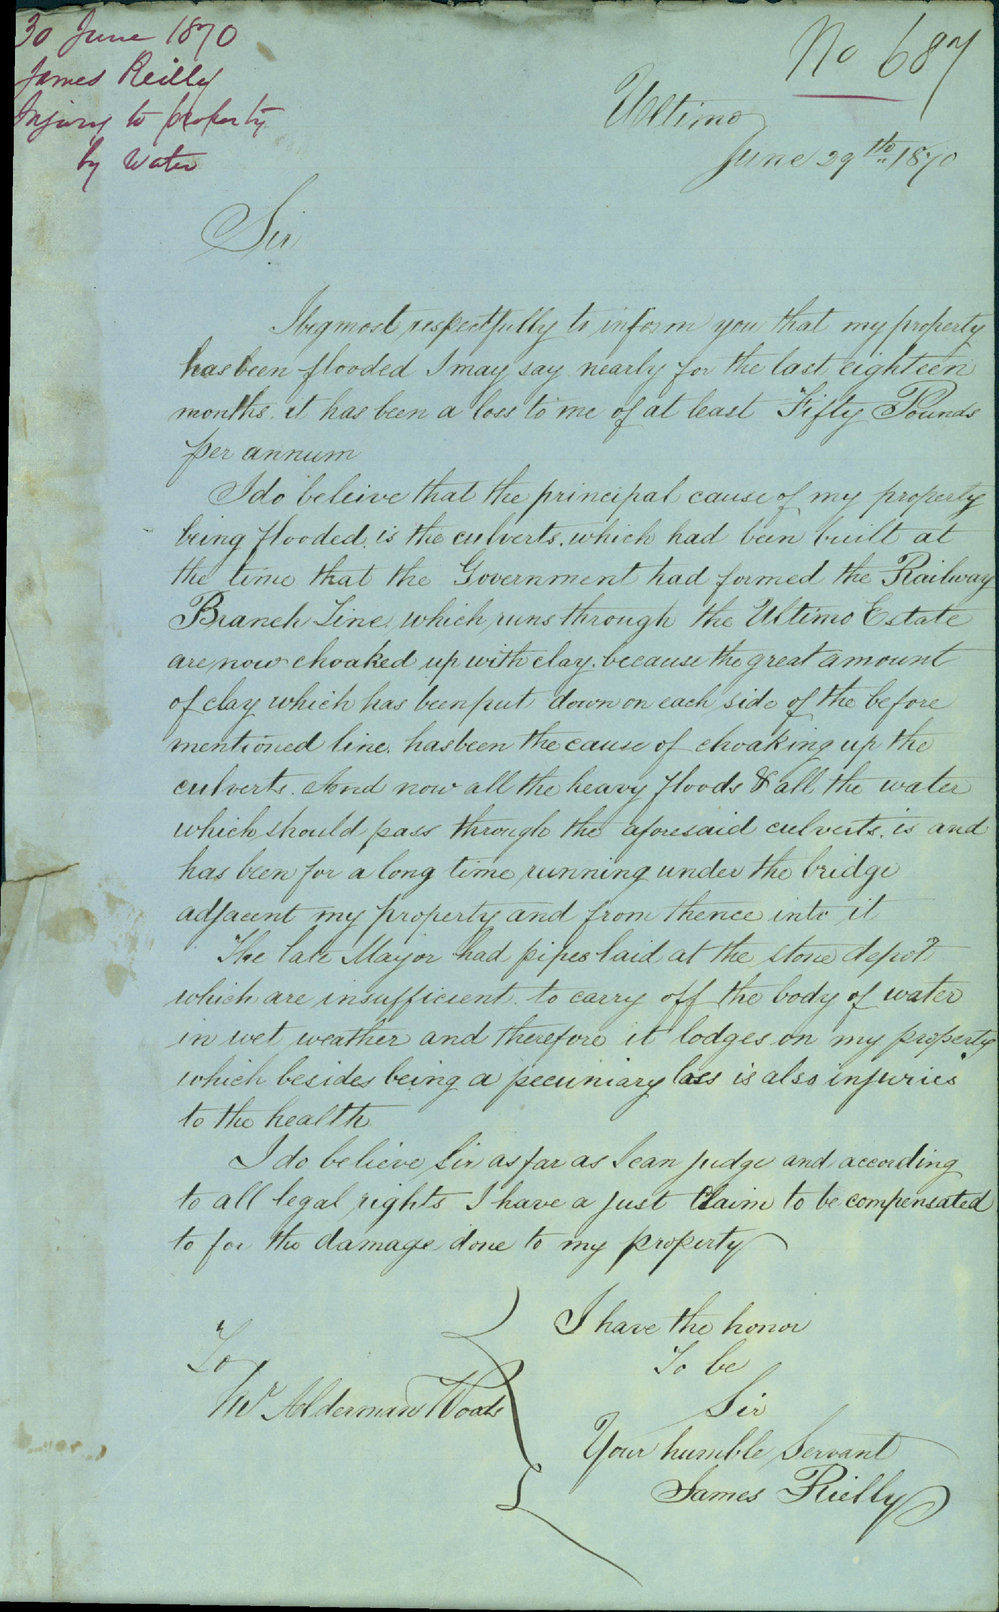 30 June 1870
James Reilly
Injury to property
by Water
No 687
Ultimo
June 29th 1870
Sir
I beg most respectfully to inform you that my property
has been flooded I may say nearly for the last eighteen
months. it has been a loss to me of at least Fifty Pounds
per annum
I do beleive that the principal cause of my property
being flooded is the culverts. which had been built at
the time that the Government had formed the Railway
Branch Line, which runs through the Ultimo Estate
are now choaked up with clay. because the great amount
of clay which has been put down on each side of the before
mentioned line. has been the cause of choaking up the
culverts. And now all the heavy floods & all the water
which should pass through the aforesaid culverts. is and
has been for a long time running under the bridge
adjacent my property and from thence into it
The late Mayor had pipes laid at the stone depot
which are insufficient to carry off the body of water
in wet weather and therefore it lodges on my property
which besides being a pecuniary loss is also injuries
to the health
I do believe Sir as far as I can judge and according
to all legal rights I have a just Claim to be compensated
to for the damage done to my property
I have the honor
To be
Sir
Your humble Servant
James Rielly
To
Mr Alderman Woods